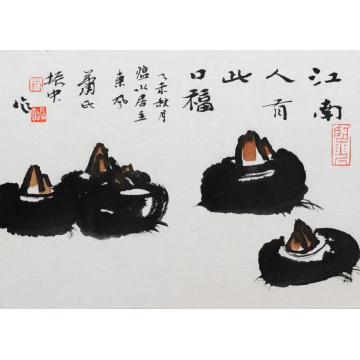 江南
人有
此
口福
乙未秋月
临水居主
東风
蕭氏
振中
作